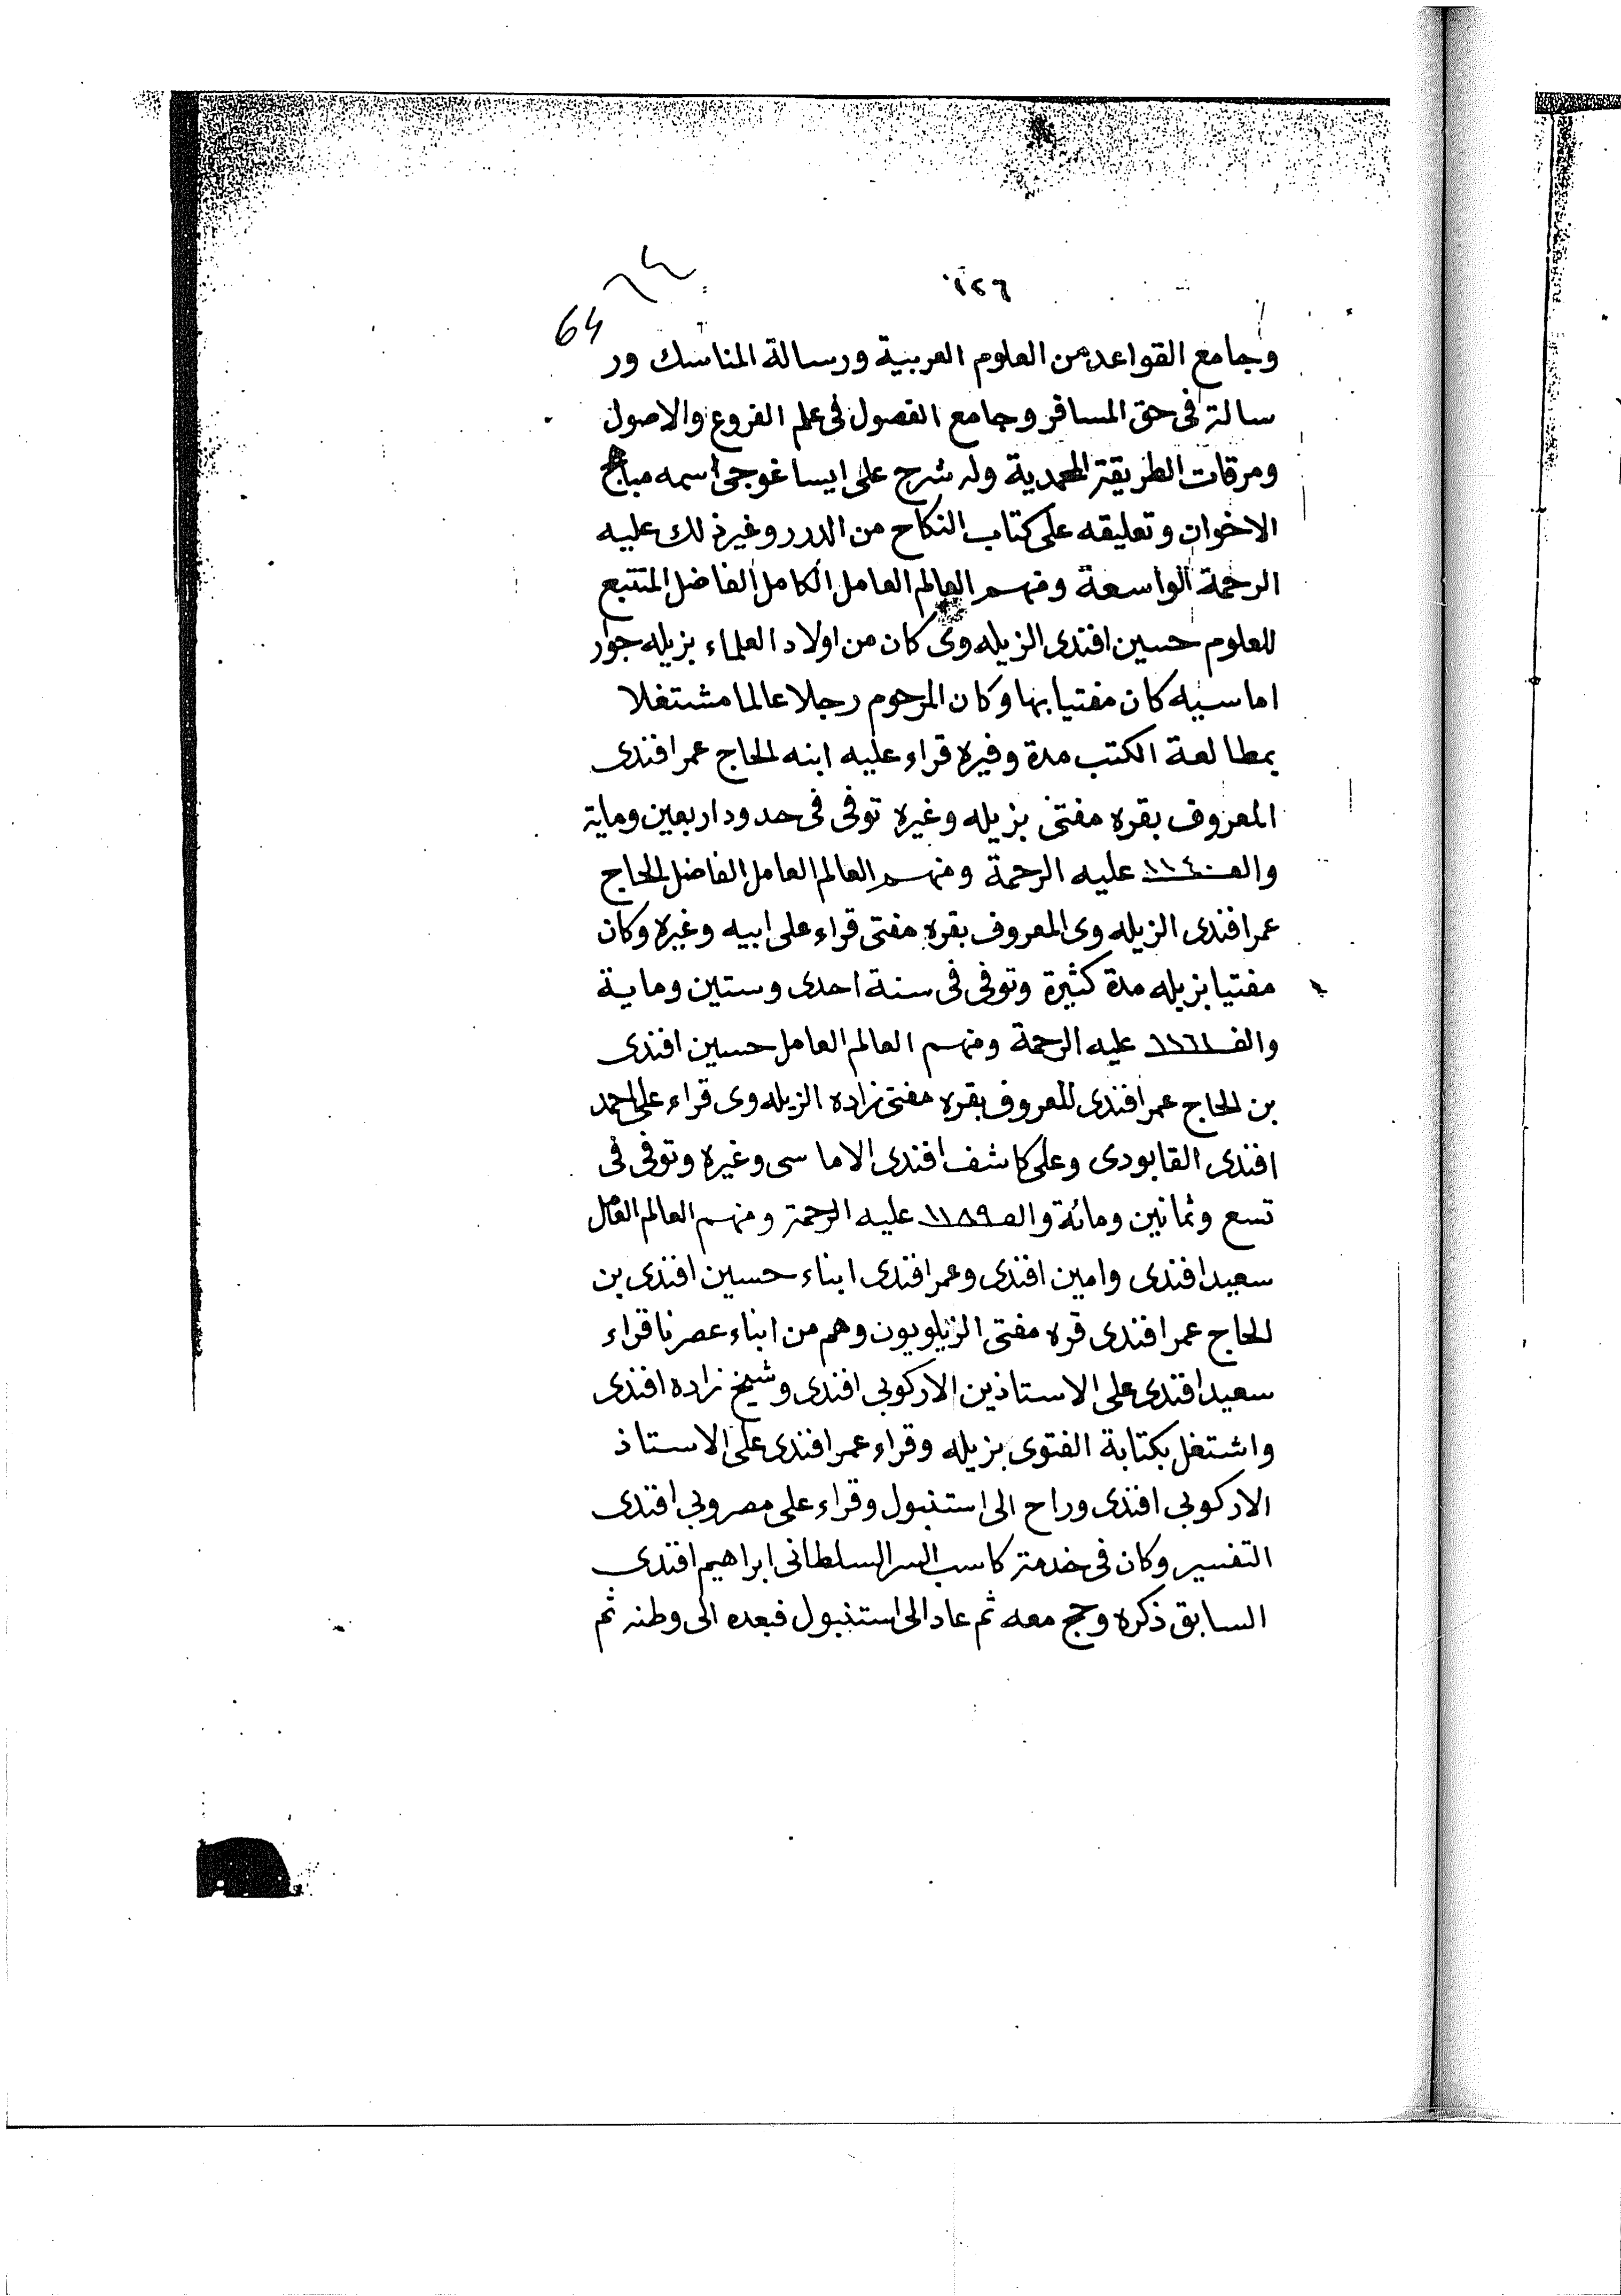 ١٢٦
٦٤
64
وجامع القواعد من العلوم العربية ورسالة المناسك ور
سالة فى حق المسافر وجامع الفصول فى علم الفروع والاصول
ومرقات الطريقة المحمدية وله شرح على ايساغوجى اسمه
الاخوان وتعليقه على كتاب النكاح من الدرر وغير ذلك عليه
الرحمة الواسعة ومنهم العالم العامل الكامل الفاضل المتتبع
للعلوم حسين افندى الزيله وى كان من اولاد العلماء بزيله جوار
اماسيه كان مفتيا بها وكان المرحوم رجلا عالما مشتغلا
بمطالعة الكتب مدة وفيره قراء عليه ابنه الحاج عمر افندى
المعروف بقره مفتى بزيله وغيره توفى فى حدود اربعين وماية
والف ١١٤٠ عليه الرحمة ومنهم العالم العامل الفاضل الحاج
عمر افندى الزيله وى المعروف بقره مفتى قراء على ابيه وغيره وكان
مفتيا بزيله مدة كثيرة وتوفى فى سنة احدى وستين وماية
والف ١١٦١ عليه الرحمة ومنهم العالم العامل حسين افندى
بن الحاج عمر افندى المعروف بقره مفتى زاده الزيله وى قراء على احمد
افندى القابودى وعلى كاشف افندى الاماسى وغيره وتوفى فى
تسع وثمانين ومائة والف ١١٨٩ عليه الرحمة ومنهم العالم العامل
سعيد افندى وامين افندى وعمر افندى ابناء حسين افندى بن
الحاج عمر افندى قره مفتى الزيلويون وهم من ابناء عصرنا قراء
سعيد افندى على الاستاذين الاركوبى افندى وشيخ زاده افندى
واشتغل بكتابة الفتوى بزيله وقراء عمر افندى على الاستاذ
الاركوبى افندى وراح الى استنبول وقراء على مصروبى افندى
التفسير وكان فى خدمة كاسب السر السلطانى ابراهيم افندى
السابق ذكره وحج معه ثم عاد الى استنبول فبعده الى وطنه ثم